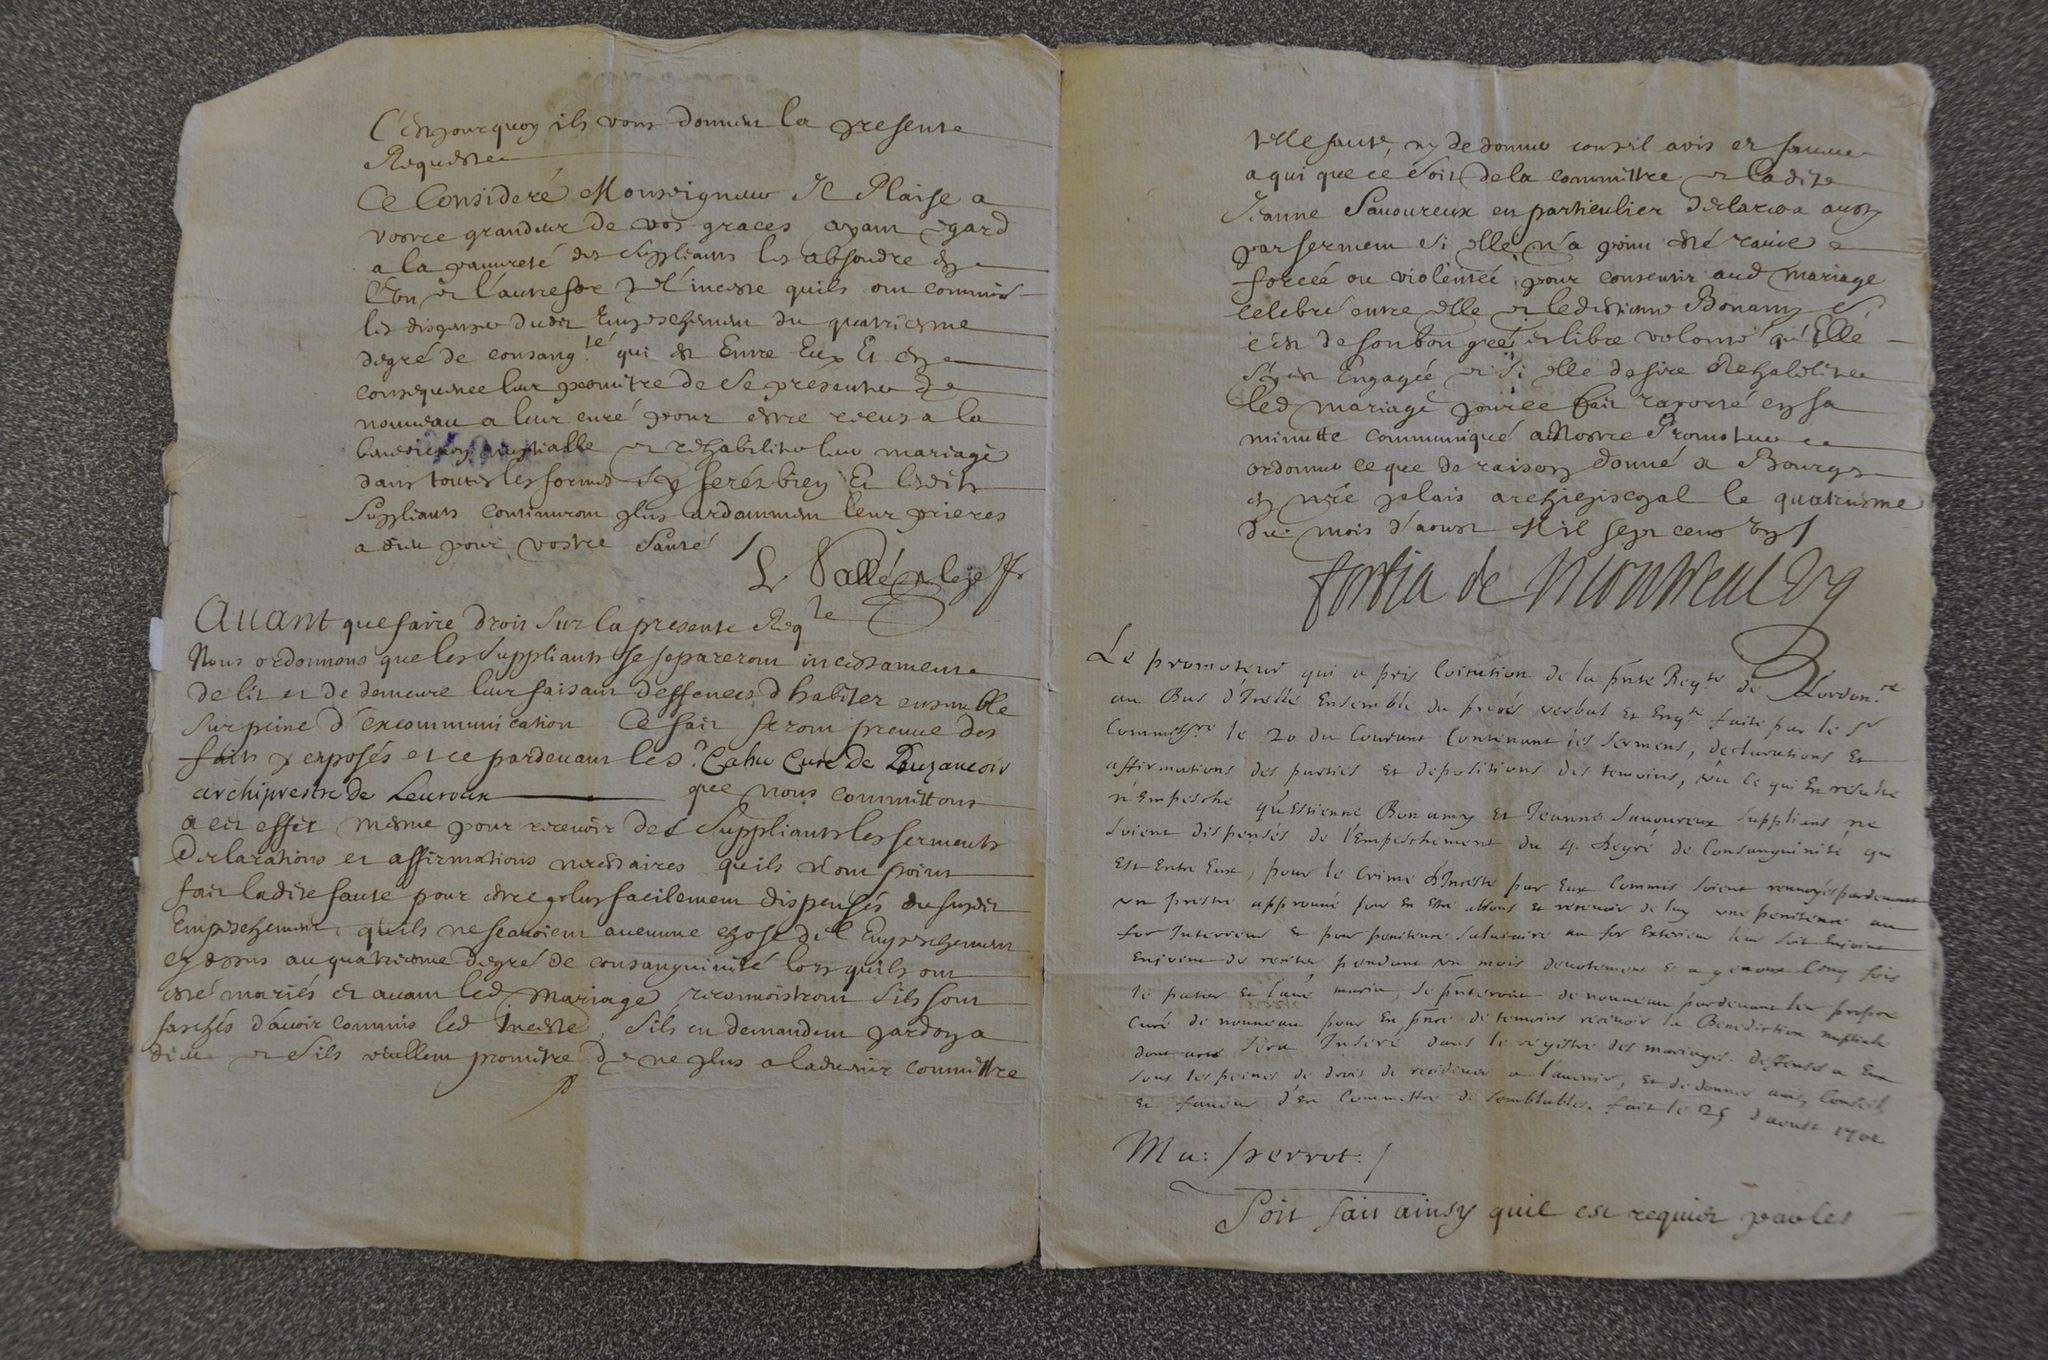 C'est pourquoy ils vous donnent la presente
Requeste
Ce Consideré Monseigneur Il Plaise a
vostre grandeur de vos graces ayant egard
a la pauvreté des suppliants les absoudre en
l'un et l'autre for de l'inceste quils ont commis
les dispenser dudit Empeschement du quatriesme
degré de consang.té qui est Entre Eux Et en
consequence leur permettre de se presenter de
nouveau a leur curé pour estre receus a la
benediction nuptialle et rehabiliter leur mariage
dans toutes les formes et ferés bien Et lesdits
suppliants continuront plus ardamment leur prieres
a dieu pour vostre santé
Avant que faire droit sur la presente Reqte
Nous ordonnons que les suppliants se separeront incessament
de lit et de demeure leur faisant deffences d'habiter ensemble
sur peine d'excommunication Ce fait feront preuve des
faits y exposés et ce pardevant le sr Cahu Curé de Buzancois
archiprestre de Levroux que nous committons
a cet effet mesme pour recevoir des suppliants les serments
declarations et affirmations necessaires quils n'ont point
fait ladite faute pour estre plus facilement dispensés du susdit
Empeschement, quils ne scavoient aucune chose del Empeschement
cy dessus au quatriesme degré de consanguinité lors quils ont
esté mariés et avant led mariage, reconnoistront s'ils sont
faschés d'avoir commis led Inceste, s'ils en demandent pardon a
dieu et s'ils veullent promettre de ne plus a ladvenir commettre
telle faute, ny de donner conseil avis et faveur
a qui que ce soit de la commettre et ladite
Jeanne Savoureux en particulier declarera aussy
par serment si elle n'a point esté ravie
forcée ou violentée pour consentir aud mariage
celebré entre elle et ledit Estienne Bonamy si
c'est de son bon gré et libre volonté qu'Elle
s'y est Engagée et si elle desire Rehabiliter
led mariage pour ce fait raporté en sa
minutte communiqué a Nostre Promoteur
ordonner ce que de raison donné a Bourges
en nre palais archiepiscopal le quatriesme
du mois d'aoust Mil sept cens
fortia de Montreal vg
Le promoteur qui a pris Coition de la pnte Reqte de L'ordonce
au Bas d'Icelle Ensemble du procés verbal Et Enqte faite par le Sr
Commissre le 20 du Courant Contenant les sermens, declarations Et
affirmations des parties Et depositions des temoins, vu ce qui En resulte
n'Empesche qu'Estienne Bonamy Et Jeanne Savoureux supplians ne
soient dispensés de l'Empeschement du 4. degré de Consanguinité qui
Est Entre Eux, pour le Crime d'Inceste par Eux Commis soient renvoyés pardevant
un prestre approuvé pour En Estre absous Et recevoir de luy une penitence au
for Interieur Et pour penitence salutaire au for Exterieur leur soit Enjoint
Enjoint de reciter pendant un mois devotement Et a genoux Cinq fois
le pater Et l'avé maria, se pnteront de nouveau pardevant leur propre
Curé de nouveau pour En pnce de temoins recevoir la Benediction nuptiale
dont acte sera Inseré dans le registre des mariages. deffenses a Eux
sous les peines de droit de recidiver a l'avenir, Et de donner avis, Conseil,
Et faveur d'En Commettre de semblables. fait le 25 d'aoust 1702
Ma: perrot.
Soit fait ainsy quil est requier par les